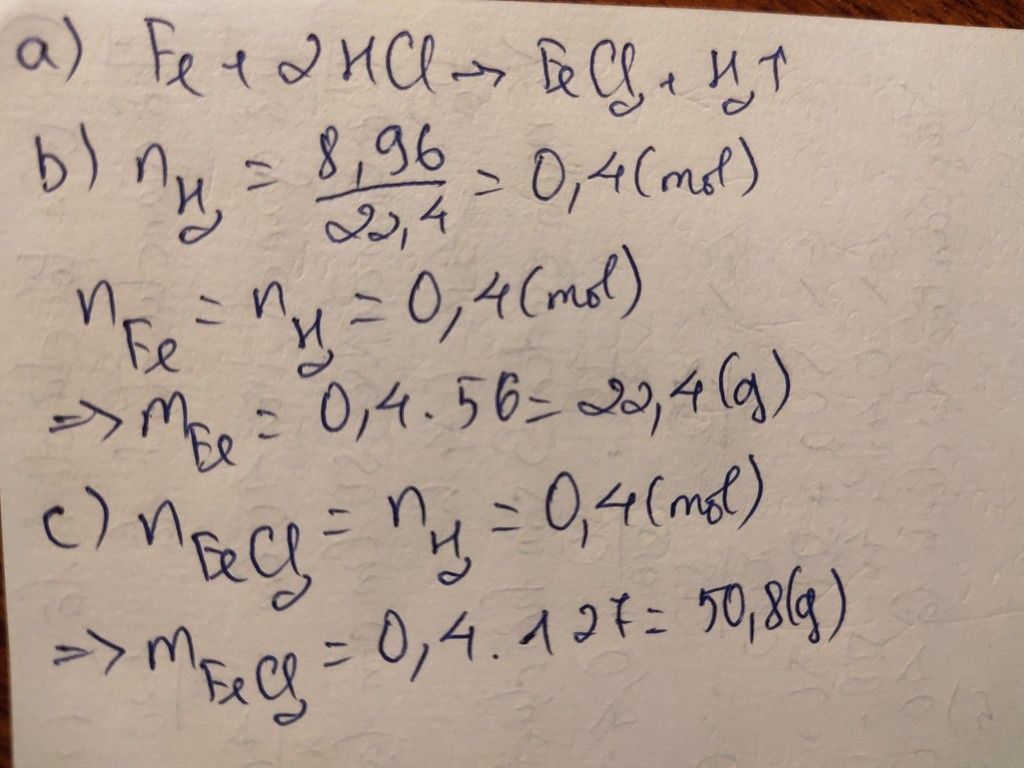 a) Fe + 2HCl → FeCl₂ + H₂↑
b) n_H₂ = 8,96/22,4 = 0,4 (mol)
n_Fe = n_H₂ = 0,4 (mol)
=> m_Fe = 0,4 . 56 = 22,4 (g)
c) n_FeCl₂ = n_H₂ = 0,4 (mol)
=> m_FeCl₂ = 0,4 . 127 = 50,8 (g)